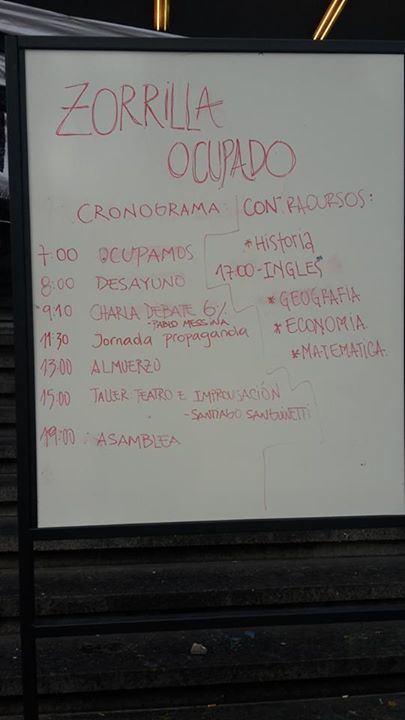 ZORRILLA
OCUPADO
CRONOGRAMA
7:00 OCUPAMOS
8:00 DESAYUNO
9:10 CHARLA DEBATE 6%
- PABLO MESSINA
11:30 Jornada propaganda
13:00 ALMUERZO
15:00 TALLER TEATRO E IMPROVISACIÓN
- SANTIAGO SANGUINETTI
19:00 ASAMBLEA
CONTRACURSOS:
* Historia
17:00 - INGLES
* GEOGRAFIA
* ECONOMIA
* MATEMATICA